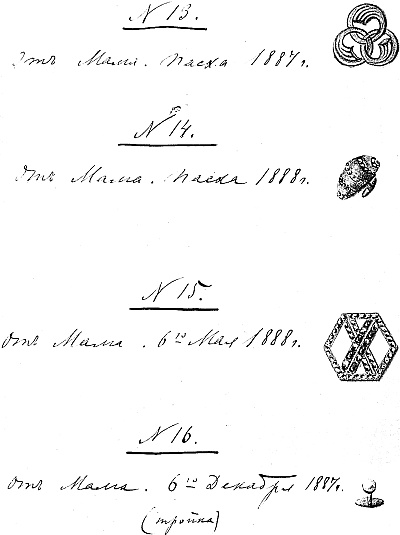 N 13.
Отъ Мама. Пасха 1887 г.
N 14.
Отъ Мама. Пасха 1888 г.
N 15.
Отъ Мама. 6го Мая 1888 г.
N 16.
Отъ Мама. 6го Декабря 1887 г.
(тройка)